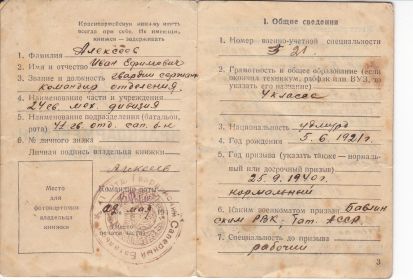 Красноармейскую книжку иметь
всегда при себе. Не имеющих
книжек — задерживать
1. Фамилия Алексеев
2. Имя и отчество Иван Ефимович
3. Звание и должность гвардии сержант
командир отделения
4. Наименование части и учреждения
24 гв. мех. дивизия
5. Наименование подразделения (батальон,
рота) 41 гв. отд. сап. б-н
6. № личного знака
Личная подпись владельца книжки
Алексеев
Место
для
фотокарточки
владельца
книжки
Командир части
Саперный
I. Общие сведения
1. Номер военно-учетной специальности
21.
2. Грамотность и общее образование (если
окончил техникум, рабфак или ВУЗ, то
указать его название)
4 класса
3. Национальность удмурт
4. Год рождения 5.6.1921г.
5. Год призыва (указать также — нормаль-
ный или досрочный призыв)
25.9.1940г.
нормальный
6. Каким военкоматом призван Бавлин
ским РВК, Тат. АССР.
7. Специальность до призыва
рабочий
3